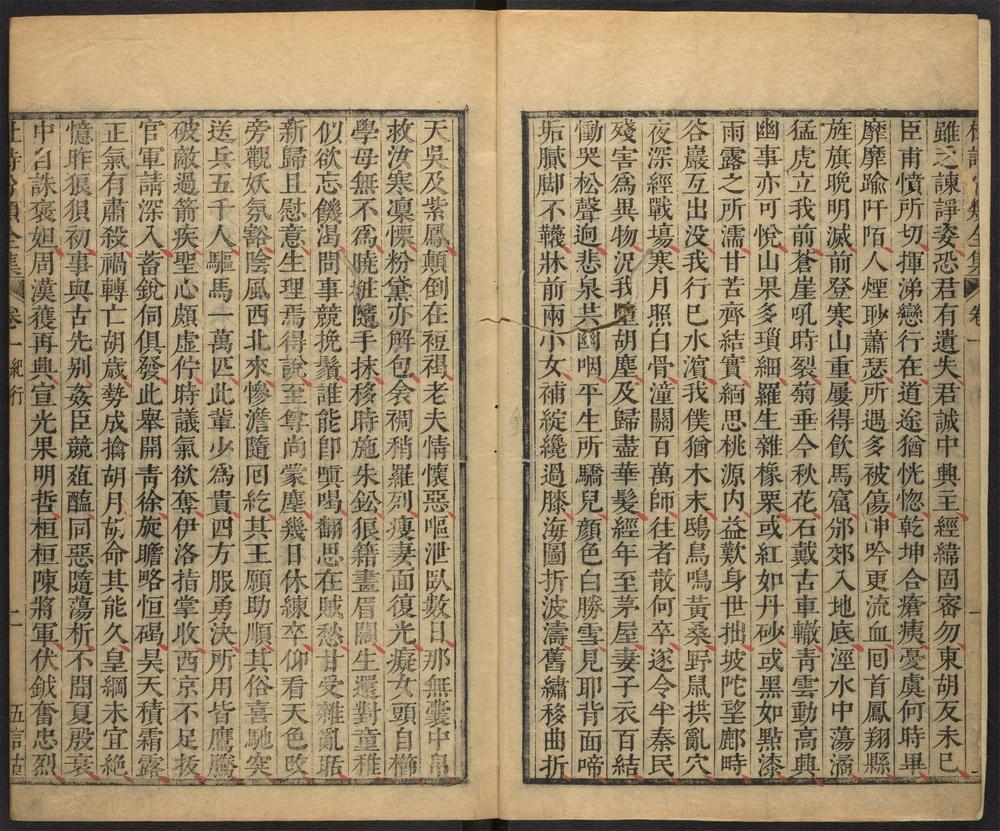 雖乏諫諍姿恐君有遺失君誠中興主經緯固密勿東胡反未已
臣甫憤所切揮涕戀行在道途猶恍惚乾坤含瘡痍憂虞何時畢
靡靡踰阡陌人煙眇蕭瑟所遇多被傷呻吟更流血囘首鳳翔縣
旌旗晚明滅前登寒山重屢得飮馬窟邠郊入地底涇水中蕩潏
猛虎立我前蒼崖吼時裂菊垂今秋花石戴古車轍靑雲動高興
幽事亦可悅山果多瑣細羅生雜橡栗或紅如丹砂或黑如點漆
雨露之所濡甘苦齊結實緬思桃源内益歎身世拙坡陀望鄜畤
谷巖互出沒我行已水濱我僕猶木末鴟鳥鳴黃桑野鼠拱亂穴
夜深經戰塲寒月照白骨潼關百萬師往者散何卒遂令半秦民
殘害爲異物況我墮胡塵及歸盡華髮經年至茅屋妻子衣百結
慟哭松聲迴悲泉共幽咽平生所驕兒顏色白勝雪見耶背面啼
垢膩脚不韈牀前兩小女補綻纔過膝海圖拆波濤舊繡移曲折
天吳及紫鳳顛倒在裋褐老夫情懷惡嘔泄臥數日那無囊中帛
救汝寒凜慄粉黛亦解包衾裯稍羅列瘦妻面復光癡女頭自櫛
學母無不爲曉粧隨手抹移時施朱鈆狼籍畫眉闊生還對童稚
似欲忘饑渴問事競挽鬚誰能卽嗔喝翻思在賊愁甘受雜亂聒
新歸且慰意生理焉得說至尊尚蒙塵幾日休練卒仰看天色改
旁觀妖氛豁陰風西北來慘澹隨囘紇其王願助順其俗喜馳突
送兵五千人驅馬一萬匹此輩少爲貴四方服勇決所用皆鷹騰
破敵過箭疾聖心頗虛佇時議氣欲奪伊洛指掌收西京不足拔
官軍請深入蓄銳伺俱發此舉開靑徐旋瞻略恒碣昊天積霜露
正氣有肅殺禍轉亡胡歲勢成擒胡月胡命其能久皇綱未宜絶
憶昨狼狽初事與古先别姦臣競葅醢同惡隨蕩析不聞夏殷衰
中自誅褒妲周漢獲再興宣光果明哲桓桓陳將軍伏鉞奮忠烈
杜詩分類全集 卷一 紀行 二 五言古